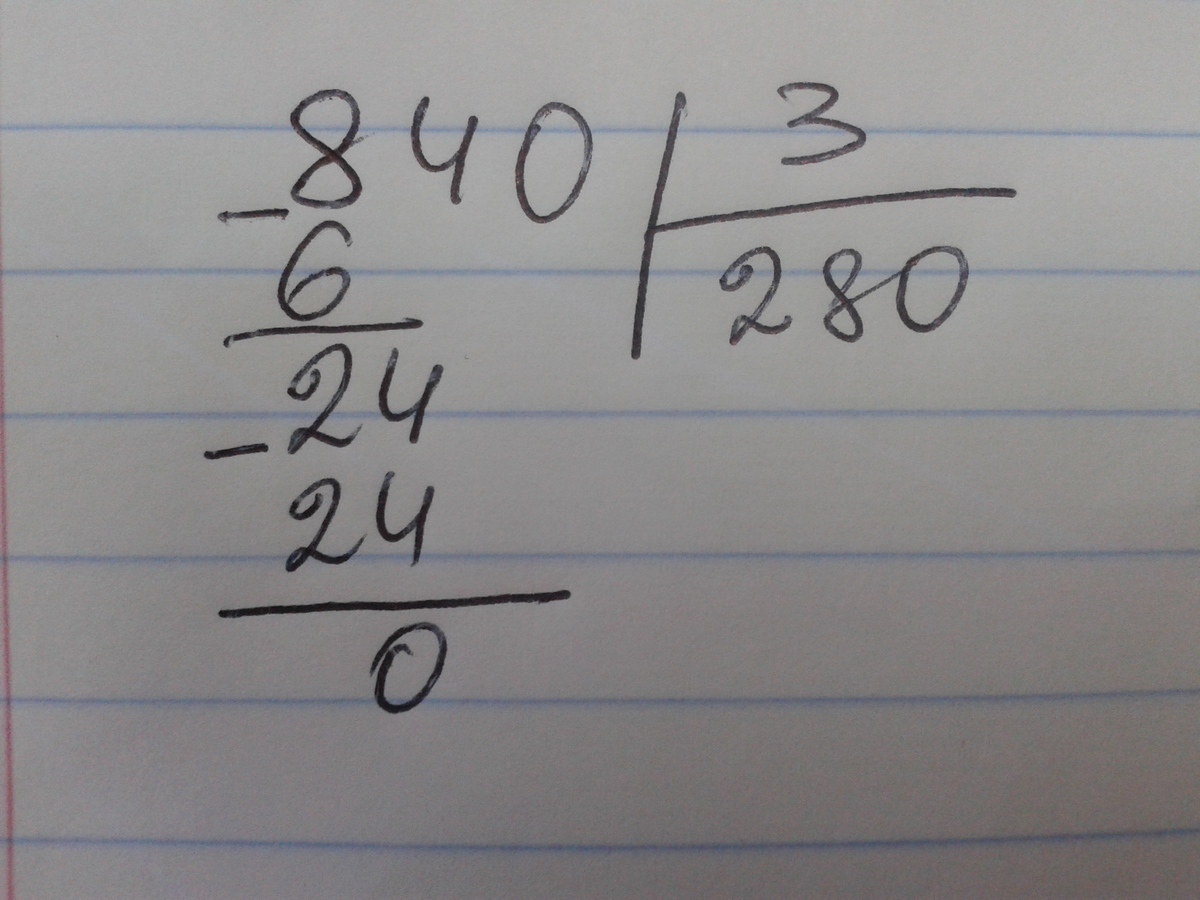 -840 | 3
6 280
24
-24
0